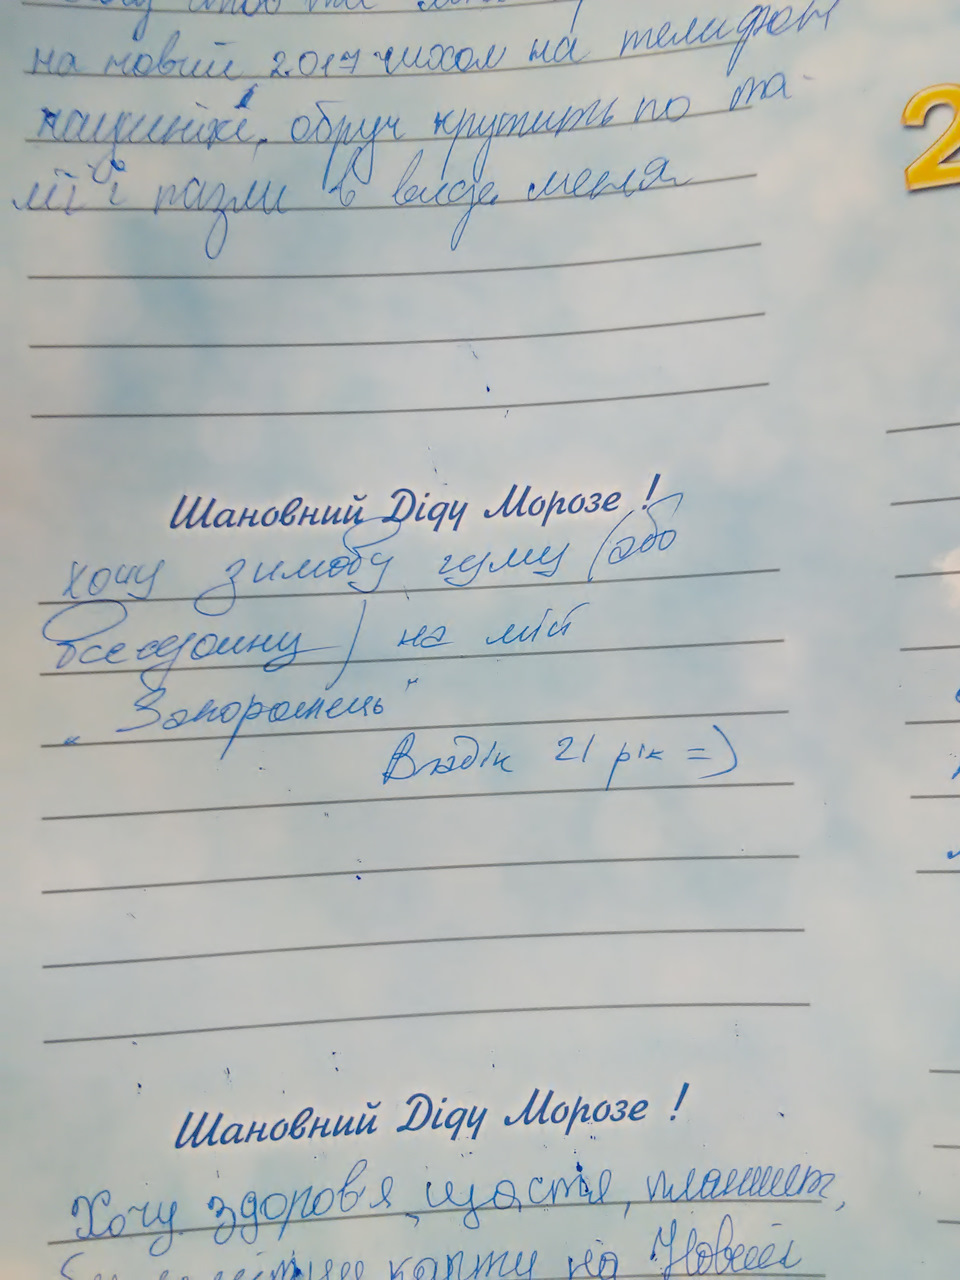 на новий 2017 чихол на телифон
наушнікі, обруч крутить по та-
лії і пазли в виде меня
2
Шановний Діду Морозе !
хочу зимову гуму (або
всесезонну) на мій
"Запорожець"
Владік 21 рік =)
Шановний Діду Морозе !
Хочу здоров'я, щастя, планшет,
карту на Новий